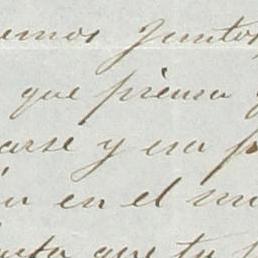 emos juntos
que piensa
arse y esa
en el
que tu